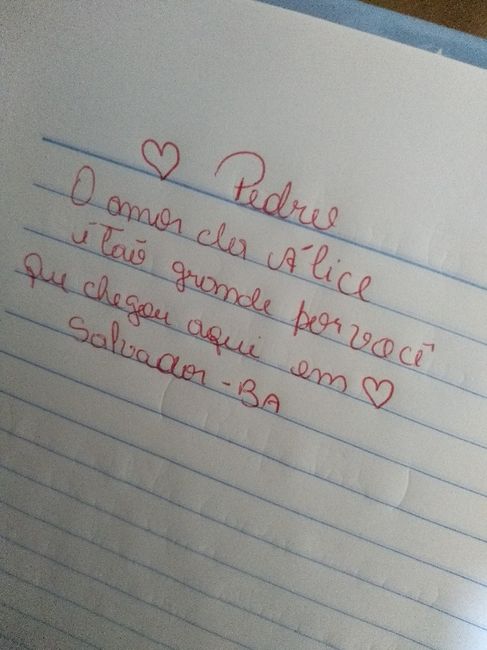 ♡ Pedro
O amor da Alice
é tão grande por você
que chegou aqui em ♡
Salvador-BA